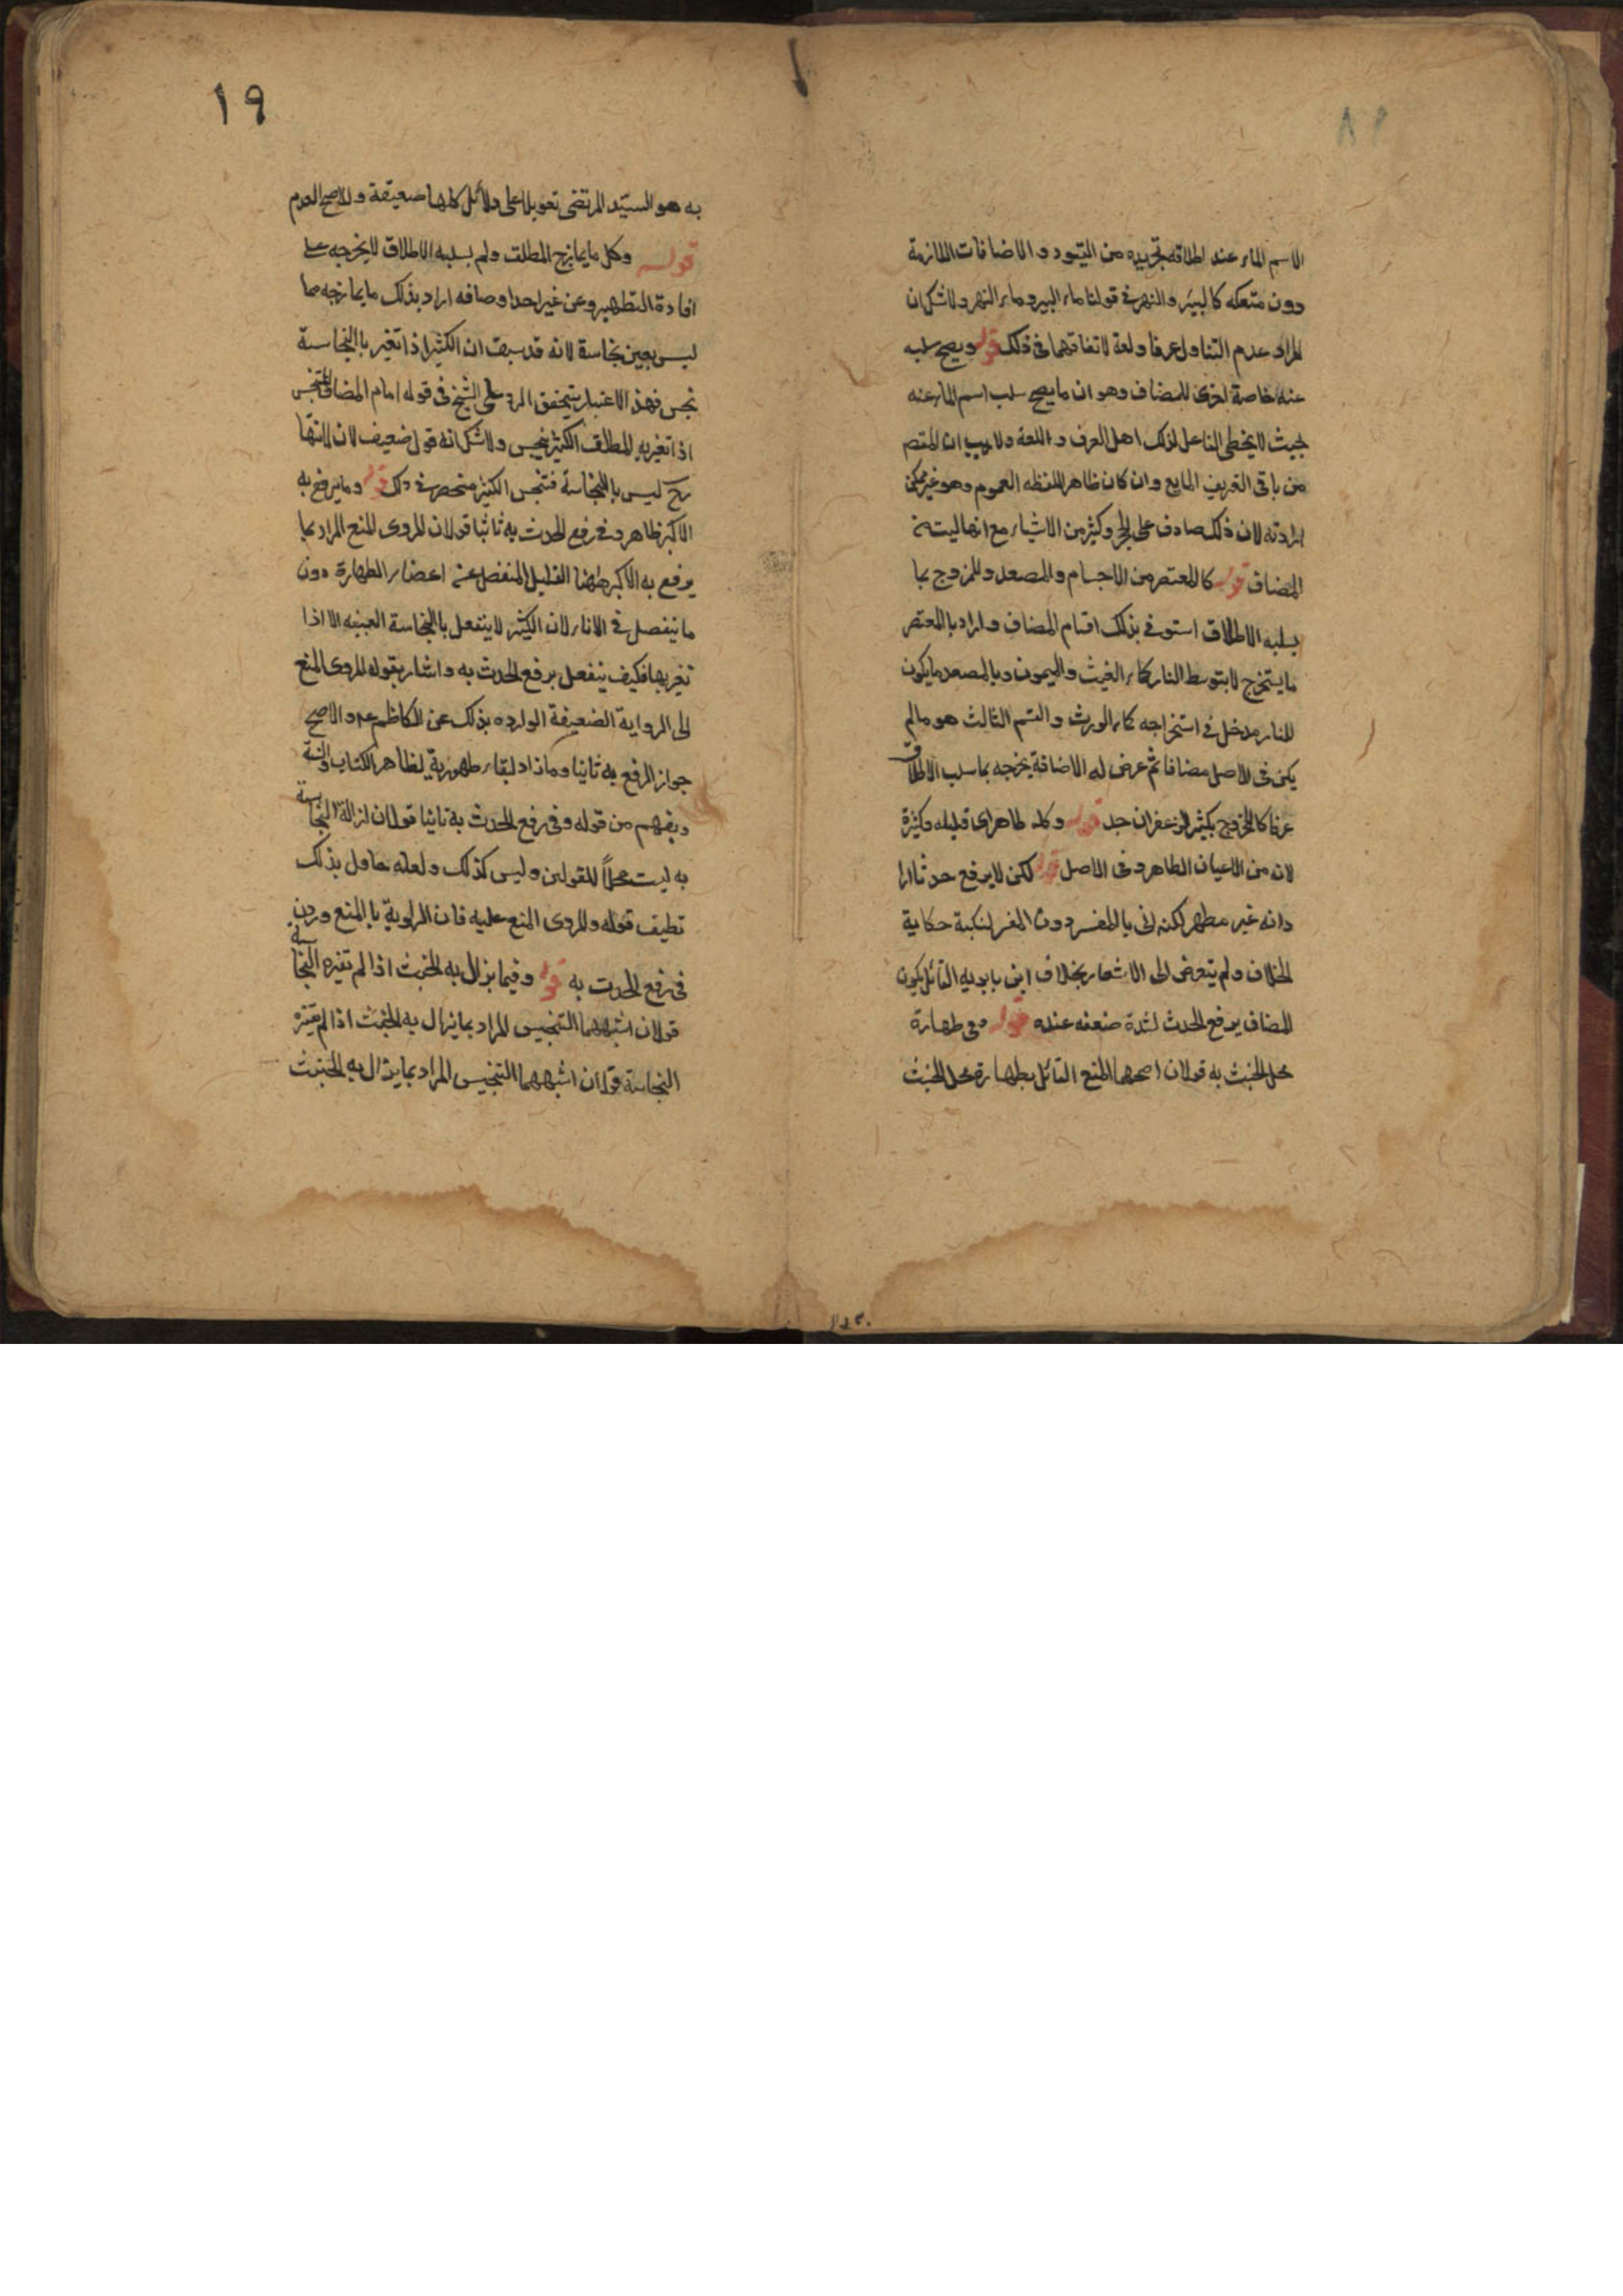 الاسم الماء عند اطلاقه تجريده من القيود و الاضافات اللازمة
دون متعكه كالبئر والنهر في قولنا ماء البير وماء النهر ولا شك ان
المراد عدم التناول عرفا ولغة لاتفاقهما فى ذلك قوله ويصح سلبه
عنه خاصة اخرى للمضاف وهو ان ما يصح سلب اسم الماء عنه
بحيث لا يخطى الفاعل لذلك اهل العرف و اللغة ولا ريب ان المقصم
من باقى التعريف المايع وان كان ظاهر اللفظه العموم وهو غير ممكن
ارادته لان ذلك صادق على الحجر وكثير من الاشياء مع انها ليست
المضاف قوله كالمعتصر من الاجسام والمصعد والممزوج بما
يسلبه الاطلاق استوفى بذلك اقسام المضاف واراد بالمعتصر
ما يستخرج لا بتوسط النار كماء الغيث والليمون وبالمصعد ما يكون
للنار مدخل فى استخراجه كماء الورث والقسم الثالث هو مالم
يكن فى الاصل مضافا ثم عرض له الاضافة يخرجه بما سلب الاطلاق
عرفا كالمخروج بكثير الزعفران جد قوله وكله طاهر اى قليله وكثيرة
لانه من الاعيان الطاهره فى الاصل قوله لكن لا يرفع حدثا ارا
دانه غير مطهر لكنه اتى بالمفسر دون المفسر لنكبة حكاية
الخلاف ولم يتعرض الى الاشعار بخلاف ابن بابويه القائل بكون
المضاف يرفع الحدث لشدة ضعفه عنده قوله وفى طهارة
محل الخبث به قولان اصحهما المنع القائل بطهارة محل الخبث
١٩
به هو السيّد المرتضى تعويلا على دلائل كلها ضعيفة والاصح العدم
قوله وكل ما يمازج المطلق ولم يسلبه الاطلاق لا يخرجه على
افادة التطهير وعن غير احد اوصافه اراد بذلك ما يمازجه مما
ليس بعين نجاسة لانه قد سبق ان الكثير اذا تغير باالنجاسة
نجس فهذ الاعتبار يتحقق الرد على الشيخ فى قوله امام المضاف المتنجس
اذا تغير به المطلق الكثير نجس ولا شك انه قول ضعيف لان لانها
ح ليس باللنجاسة فتنجس الكثير منحصر فى ذلك قوله وما يرفع به
الاكبر ظاهر وفى رفع الحدث به ثانيا قولان المروى المنع المراد بما
يرفع به الاكبر ههنا القليل المنفصل عن اعضاء الطهارة دون
ما ينفصل فى الاناء لان الكثير لا ينفعل باالنجاسة العينيه الا اذا
تغير بها فكيف ينفعل برفع الحدث به واشار بقوله المروى المنع
الى الرواية الضعيفة الوارده بذلك عن الكاظم عم والاصح
جواز الرفع به ثانيا وماذاد لبقاء طهورية لظاهر الكتاب والسنة
ويفهم من قوله وفى رفع الحدث به ثانيا قولان ازالة النجاسة
به ليست محلاً للقولين وليس كذلك ولعله حاول بذلك
تطبيق قوله والمروى المنع عليه فان الراوية باالمنع وردن
فى رفع الحدث به قوله وفيما يزال به الخبث اذا لم تغيره النجاسة
قولان اشبههما التنجيس المراد بما يزال به الخبث اذا لم تغيره
النجاسة قولان اشبههما التنجيس المراد بما يزال به الخبث